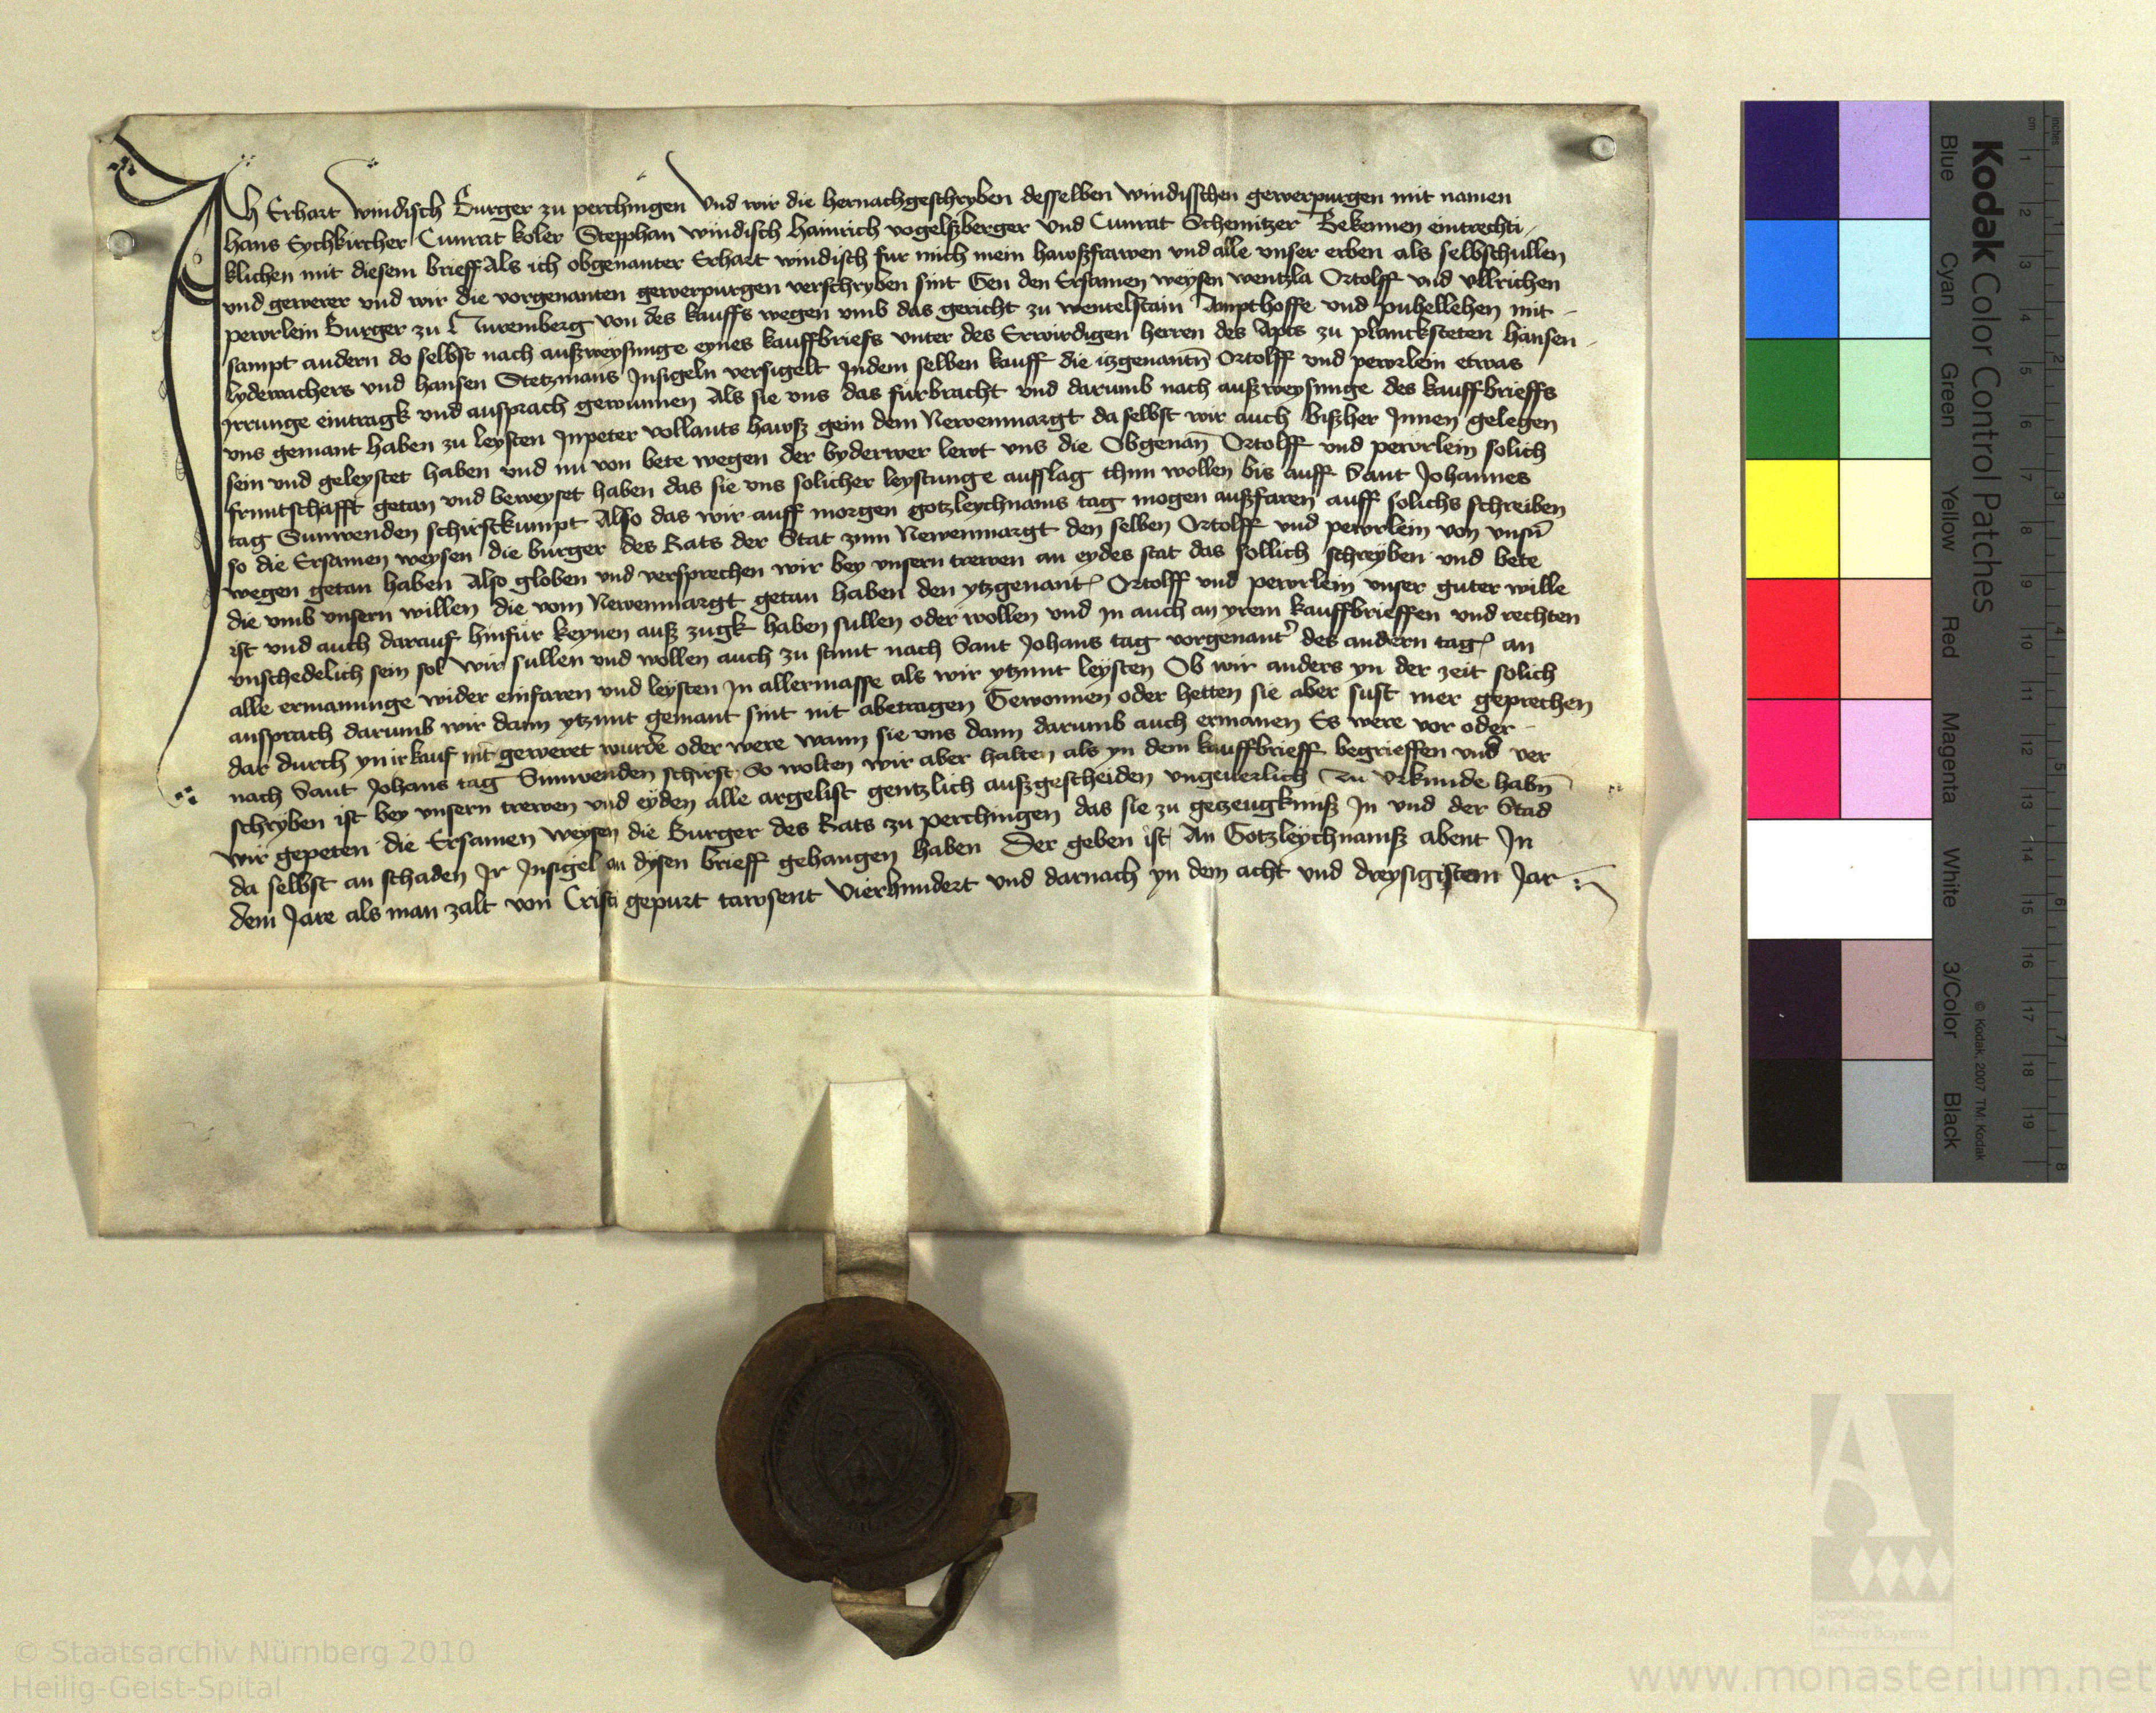 Ich Erhart windisch Burger zu perchingen Und wir die hernachgeschryben desselben windisschen gewerpurgen mit namen
hans Sychkircher Cunrat koler Stepphan windisch hainrich vogelszberger Und Cunrat Schemitzer Bekennen eintrechti
klichen mit diesem brieff Als ich obgenanter Erhart windisch fur mich mein hawszfrawen und alle unser erben als selbschullen
und gewerer und wir die vorgenanten gewerpurgen verschryben sint Gen den Ersamen weysen wentzla Ortolff und Ullrichen
pewrlein Burger zu Nuremberg von des kauffs wegen umb das gericht zu wentelstain Ampthoffe und puhellehen mit
sampt andern do selbst nach auszweysunge eynes kauffbriefs unter des Erwirdigen herren des Apts zu plancksteten hansen
lydewachers und hansen Stetzmans Insigeln versigelt Indem selben kauff die itzgenantn̄ Ortolff und pewrlein etwas
Irrunge eintragk und ansprach gewunnen Als sie uns das furbracht und darumb nach auszweysunge des kauffbrieffs
uns gemant haben zu leysten Inpeter vollants hawsz gein dem Newenmargt da selbst wir auch biszher Innen gelegen
sein und geleystet haben und nu von bete wegen der byderwer lewt uns die Obgenan̄ Ortolff und pewrlein solich
fruntschafft getan und beweyset haben das sie uns solicher leystunge aufflag thun wollen bis auff Sant Johannes
tag Sunwenden schirstkumpt Also das wir auff morgen gotzleychnams tag mogen auszfaren auff solichs schreiben
so die Ersamen weysen die burger des Rats der Stat zum Newenmargt den selben Ortolff und pewrlein von unsn̄
wegen getan haben Also globen und versprechen wir bey unsern trewen an eydes stat das sollich schreyben und bete
die umb unsern willen die vom Newenmargt getan haben den ytzgenant Ortolff und pewrlein unser guter wille
ist und auch darauf hinfur keynen ausz zugk haben sullen oder wollen und In auch an yrem kauffbrieffen und rechten
unschedelich sein sol wir sullen und wollen auch zu stunt nach Sant Johans tag vorgenant des andern tag an
alle ermanunge wider einfaren und leysten In allermasse als wir ytzunt leysten Ob wir anders yn der zeit solich
ansprach darumb wir dann ytzunt gemant sint nit abetragen Gewonnen oder hetten sie aber sust mer geprechen
dar durch yn ir kauf nit geweret wurde oder were wann sie uns dann darumb auch ermanen Es were vor oder
nach Sant Johans tag Sunwenden schirst So wolten wir aber halten als yn dem kauffbrieff begrieffen und ver
schryben ist bey unsern trewen und eyden alle argelist gentzlich auszgescheiden ungeuerlich Zu Urkunde habn̄
wir gepeten die Ersamen weysen die Burger des Rats zu perchingen das sie zu getzeugknisz In und der Stad
da selbst an schaden Ir Insigel an dysen brieff gehangen haben Der geben ist An Gotzleychnamsz abent In
dem Jare als man zalt von Cristi gepurt tawsent Vierhundert und darnach yn dem acht und dreysigistem Jar
Kodak Color Control Patches
Blue Cyan Green Yellow Red Magenta White 3/Color Black
© Kodak, 2007 TM: Kodak
inches 1 2 3 4 5 6 7 8
cm 1 2 3 4 5 6 7 8 9 10 11 12 13 14 15 16 17 18 19
Staatliche
Archive Bayerns
© Staatsarchiv Nürnberg 2010
Heilig-Geist-Spital
www.monasterium.net